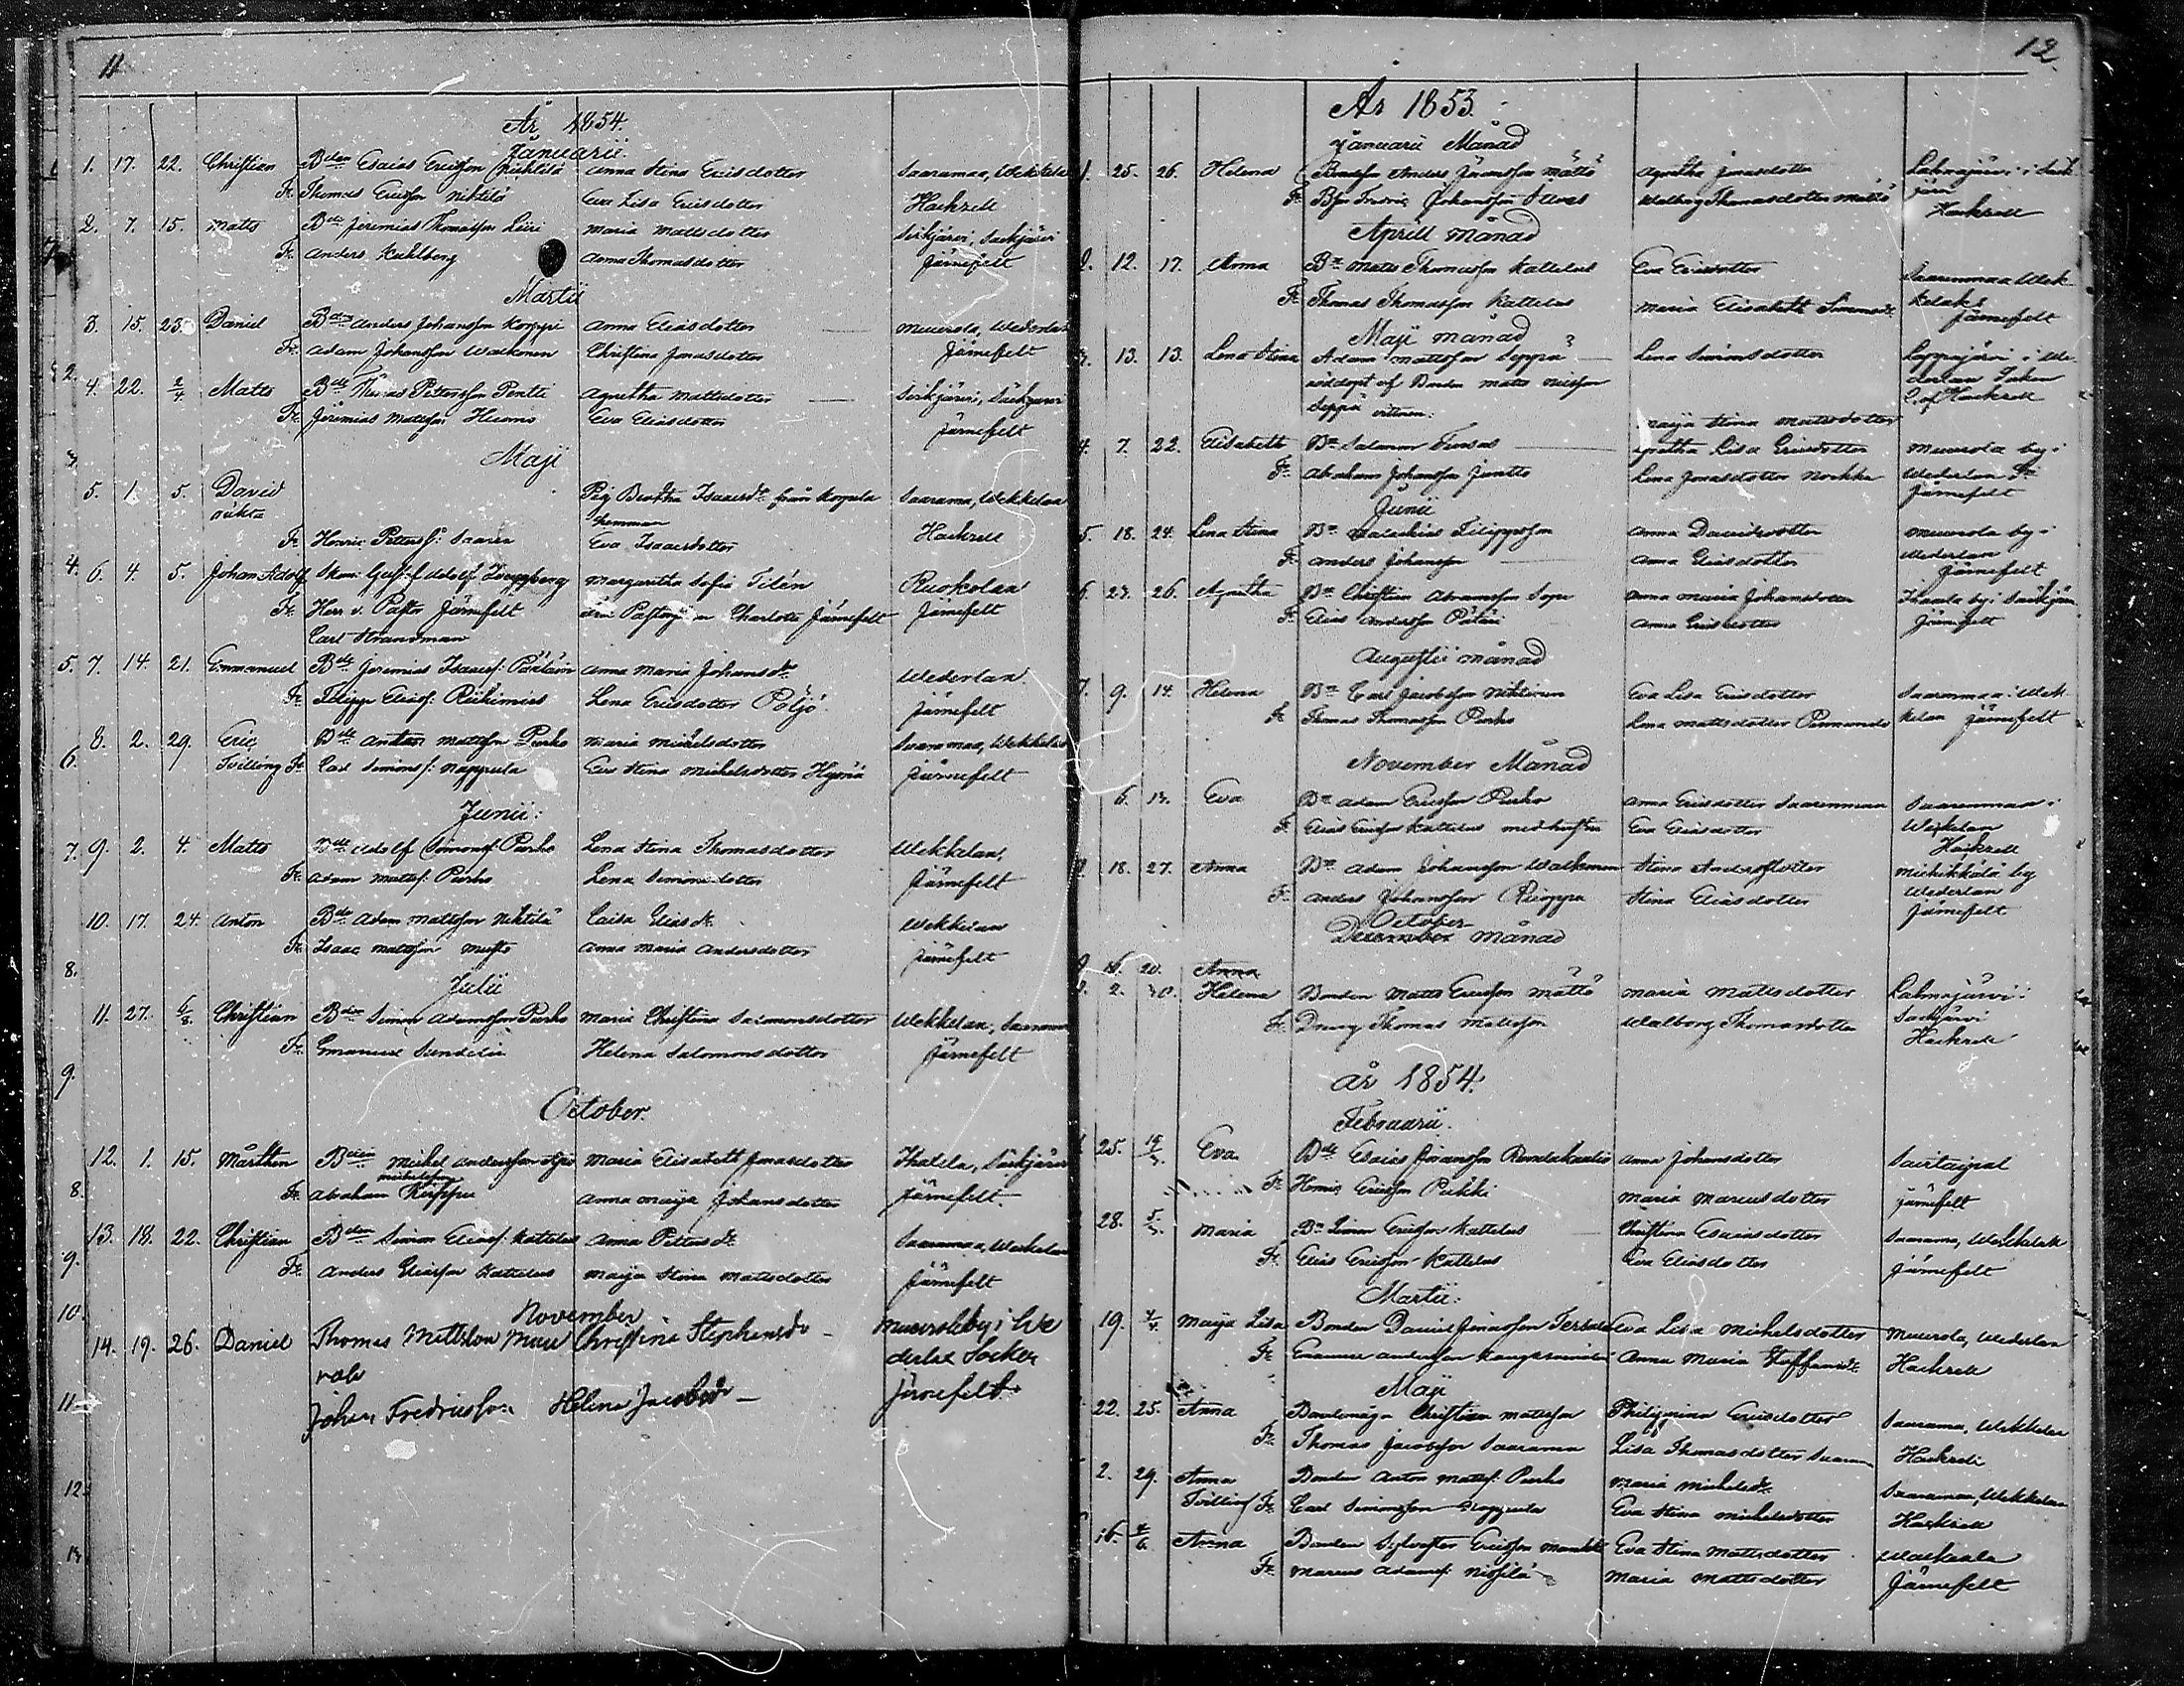 11
År 1854.
Januarii.
1. 17. 22. Christian Bden Esaias Ericsson Niktilä Anna Stina Ericsdotter Saaramaa, Wekkelax
Fr. Thomas Ericsson Niktilä Eva Lisa Ericsdotter Hackzell
2. 7. 15. Matts Bde Jeremias Thomasson Liiri Maria Mattsdotter Sirkjärvi, Säckjärvi
Fr. Anders Kuhlberg Anna Thomasdotter Järnefelt
Martii
3. 15. 23. Daniel Bden Anders Johansson Korppi Anna Eliasdotter Muurola, Wederlax
Fr. Adam Johansson Walkonen Christina Jonasdotter Järnefelt
4. 22. 2/4 Matts Bde Thomas Pettersson Pentti Agnetha Mattsdotter Sirkjärvi, Säckjärvi
Fr. Jeremias Mattsson Eva Eliasdotter Järnefelt
Maji
5. 1. 5. David Pig. Beatha Isaacsdr från Korpela Saarama, Wekkelax
oäkta hemman
Fr. Henric Petterss: Saaren Eva Isaacsdotter Hackzell
6. 4. 5. Johan Adolf Margaritha Sofia Tilén Ruokolax
Fr. Herr v. Pastor Järnefelt Charlotta Järnefelt Järnefelt
Carl Strandman
7. 14. 21. Emmanuel Bde Jeremias Isaacss: Anna Maria Johansdr Wederlax
Fr. Filipp Eliass: Riihimies Lena Ericsdotter Pöljö Järnefelt
8. 2. 29. Eric Bde Anton Mattsson Purho Maria Michelsdotter Saaramaa, Wekkelax
Tvilling Fr. Carl Simonss: Nappula Eva Stina Michelsdotter Järnefelt
Junii:
9. 2. 4. Matts Bde Adolf Simonss. Purho Lena Stina Thomasdotter Wekkelax,
Fr. Adam Mattss: Purho Lena Simonsdotter Järnefelt
10. 17. 24. Anton Bde Adam Mattsson Niktilä Caisa Eliasdr Wekkelax
Fr. Isaac Mattsson Anna Maria Andersdotter Järnefelt
Julii
11. 27. 6/8. Christian Bden Simon Adamsson Purho Maria Christina Salomonsdotter Wekkelax, Saaramaa
Fr. Emanuel Sundelin Helena Salomonsdotter Järnefelt
October.
12. 1. 15. Mårthen Bden Michel Andersson Maria Elisabeth Jonasdotter Ihalila, Säckjärvi
Michelsson
Fr. Abraham Anna Maija Johansdotter Järnefelt
13. 18. 22. Christian Bden Simon Eliass: Kattelus Anna Pettersdr Saaramaa, Weckelax
Fr. Anders Eliasson Kattelus Maija Stina Mattsdotter Järnefelt
November
14. 19. 26. Daniel Thomas Mattsson Muu Christina Stephansdr Muurola by i We
rola derlax Socken
Johan Fredricsson Helena Jacobsdr Järnefelt
12.
År 1853.
Januarii Månad
1. 25. 26. Helena Bondson Anders Jöransson Mättö Agnetha Jonasdotter Lahnajärvi i Säck
Fr. Bson Fredric Johansson Walborg Thomasdotter Mättö järvi
Hackzell
Aprill Månad
2. 12. 17. Anna Bn Matts Thomasson Kattelus Eva Ericsdotter Saaramaa Wek
Fr. Thomas Thomasson Kattelus Maria Elisabeth Simonsdr kelax
Järnefelt
Maji månad
3. 13. 13. Lena Stina Adam Mattsson Seppä Lena Simonsdotter Lappajärvi i We
nöddöpt af Bonden Matts Nilsson derlax Soken
Seppä vittnen: Maija Stina Mattsdotter C. af Hackzell
4. 7. 22. Elisabeth Bn Salomon Tuusas Agnetha Lisa Ericsdotter Muurola by i
Fr. Abraham Johansson Juntto Lena Jonasdotter Nockka Wederlax Sn
Järnefelt
Junii
5. 18. 24. Lena Stina Bn Malachias Filippsson Anna Davidsdotter Muurola by i
Fr. Anders Johansson Anna Eliasdotter Wederlax
Järnefelt
6. 23. 26. Agnetha Bn Christian Abramsson Sopa Anna Maria Johansdotter Ihaala by i Säckjärvi
Fr. Elias Andersson Anna Ericsdotter Järnefelt
Augustii månad
7. 9. 14. Helena Bn Carl Jacobsson Niktinen Eva Lisa Ericsdotter Saaramaa i Wek
Fr. Thomas Thomasson Purho Lena Mattsdotter kelax Järnefelt
November Månad
6. 13. Eva Bn Adam Ericsson Purho Anna Ericsdotter Saaremaa Saaremaa i
Fr. Elias Ericsson Kattelus med hustru Eva Eliasdotter Wekkelax
Hackzell
18. 27. Anna Bn Adam Johansson Walkonen Stina Andersdotter Miehikkälä by
Fr. Anders Johansson Stina Eliasdotter Wederlax
Järnefelt
October
December månad
16. 20. Anna
2. 30. Helena Bonden Matts Ericsson Mättö Maria Mattsdotter Lahnajärvi i
Fr. Dreng Thomas Mattsson Walborg Thomasdotter Säckjärvi
Hackzell
år 1854.
Februarii.
25. Eva Bde Esaias Jöransson Anna Johansdotter Savitaipal
Fr. Henric Ericsson Pukki Maria Marcusdotter Järnefelt
28. 5/3. Maria Bn Simon Ericsson Kattelus Christina Esaiasdotter Saarama, Wekkelax
Fr. Elias Ericsson Kattelus Eva Eliasdotter Järnefelt
Martii:
19. 4/4. Maija Lisa Bonden Daniel Jonasson Eva Lisa Michelsdotter Muurola, Wederlax
Fr. Emanuel Andersson Anna Maria Staffansdr Hackzell
Maji
22. 25. Anna Christian Mattsson Philippina Ericsdotter Saarama, Wekkelax
Fr. Thomas Jacobsson Saarama Lisa Thomasdotter Hackzell
2. 29. Anna Bonden Anton Mattss: Purho Maria Michelsdr Saaramaa, Wekkelax
Tvilling Fr. Carl Simonsson Nappula Eva Stina Michelsdotter Hackzell
16. 4/6. Anna Bonden Sylvester Ericsson Eva Stina Mattsdotter
Fr. Marcus Adamss: Nissilä Maria Mattsdotter Järnefelt